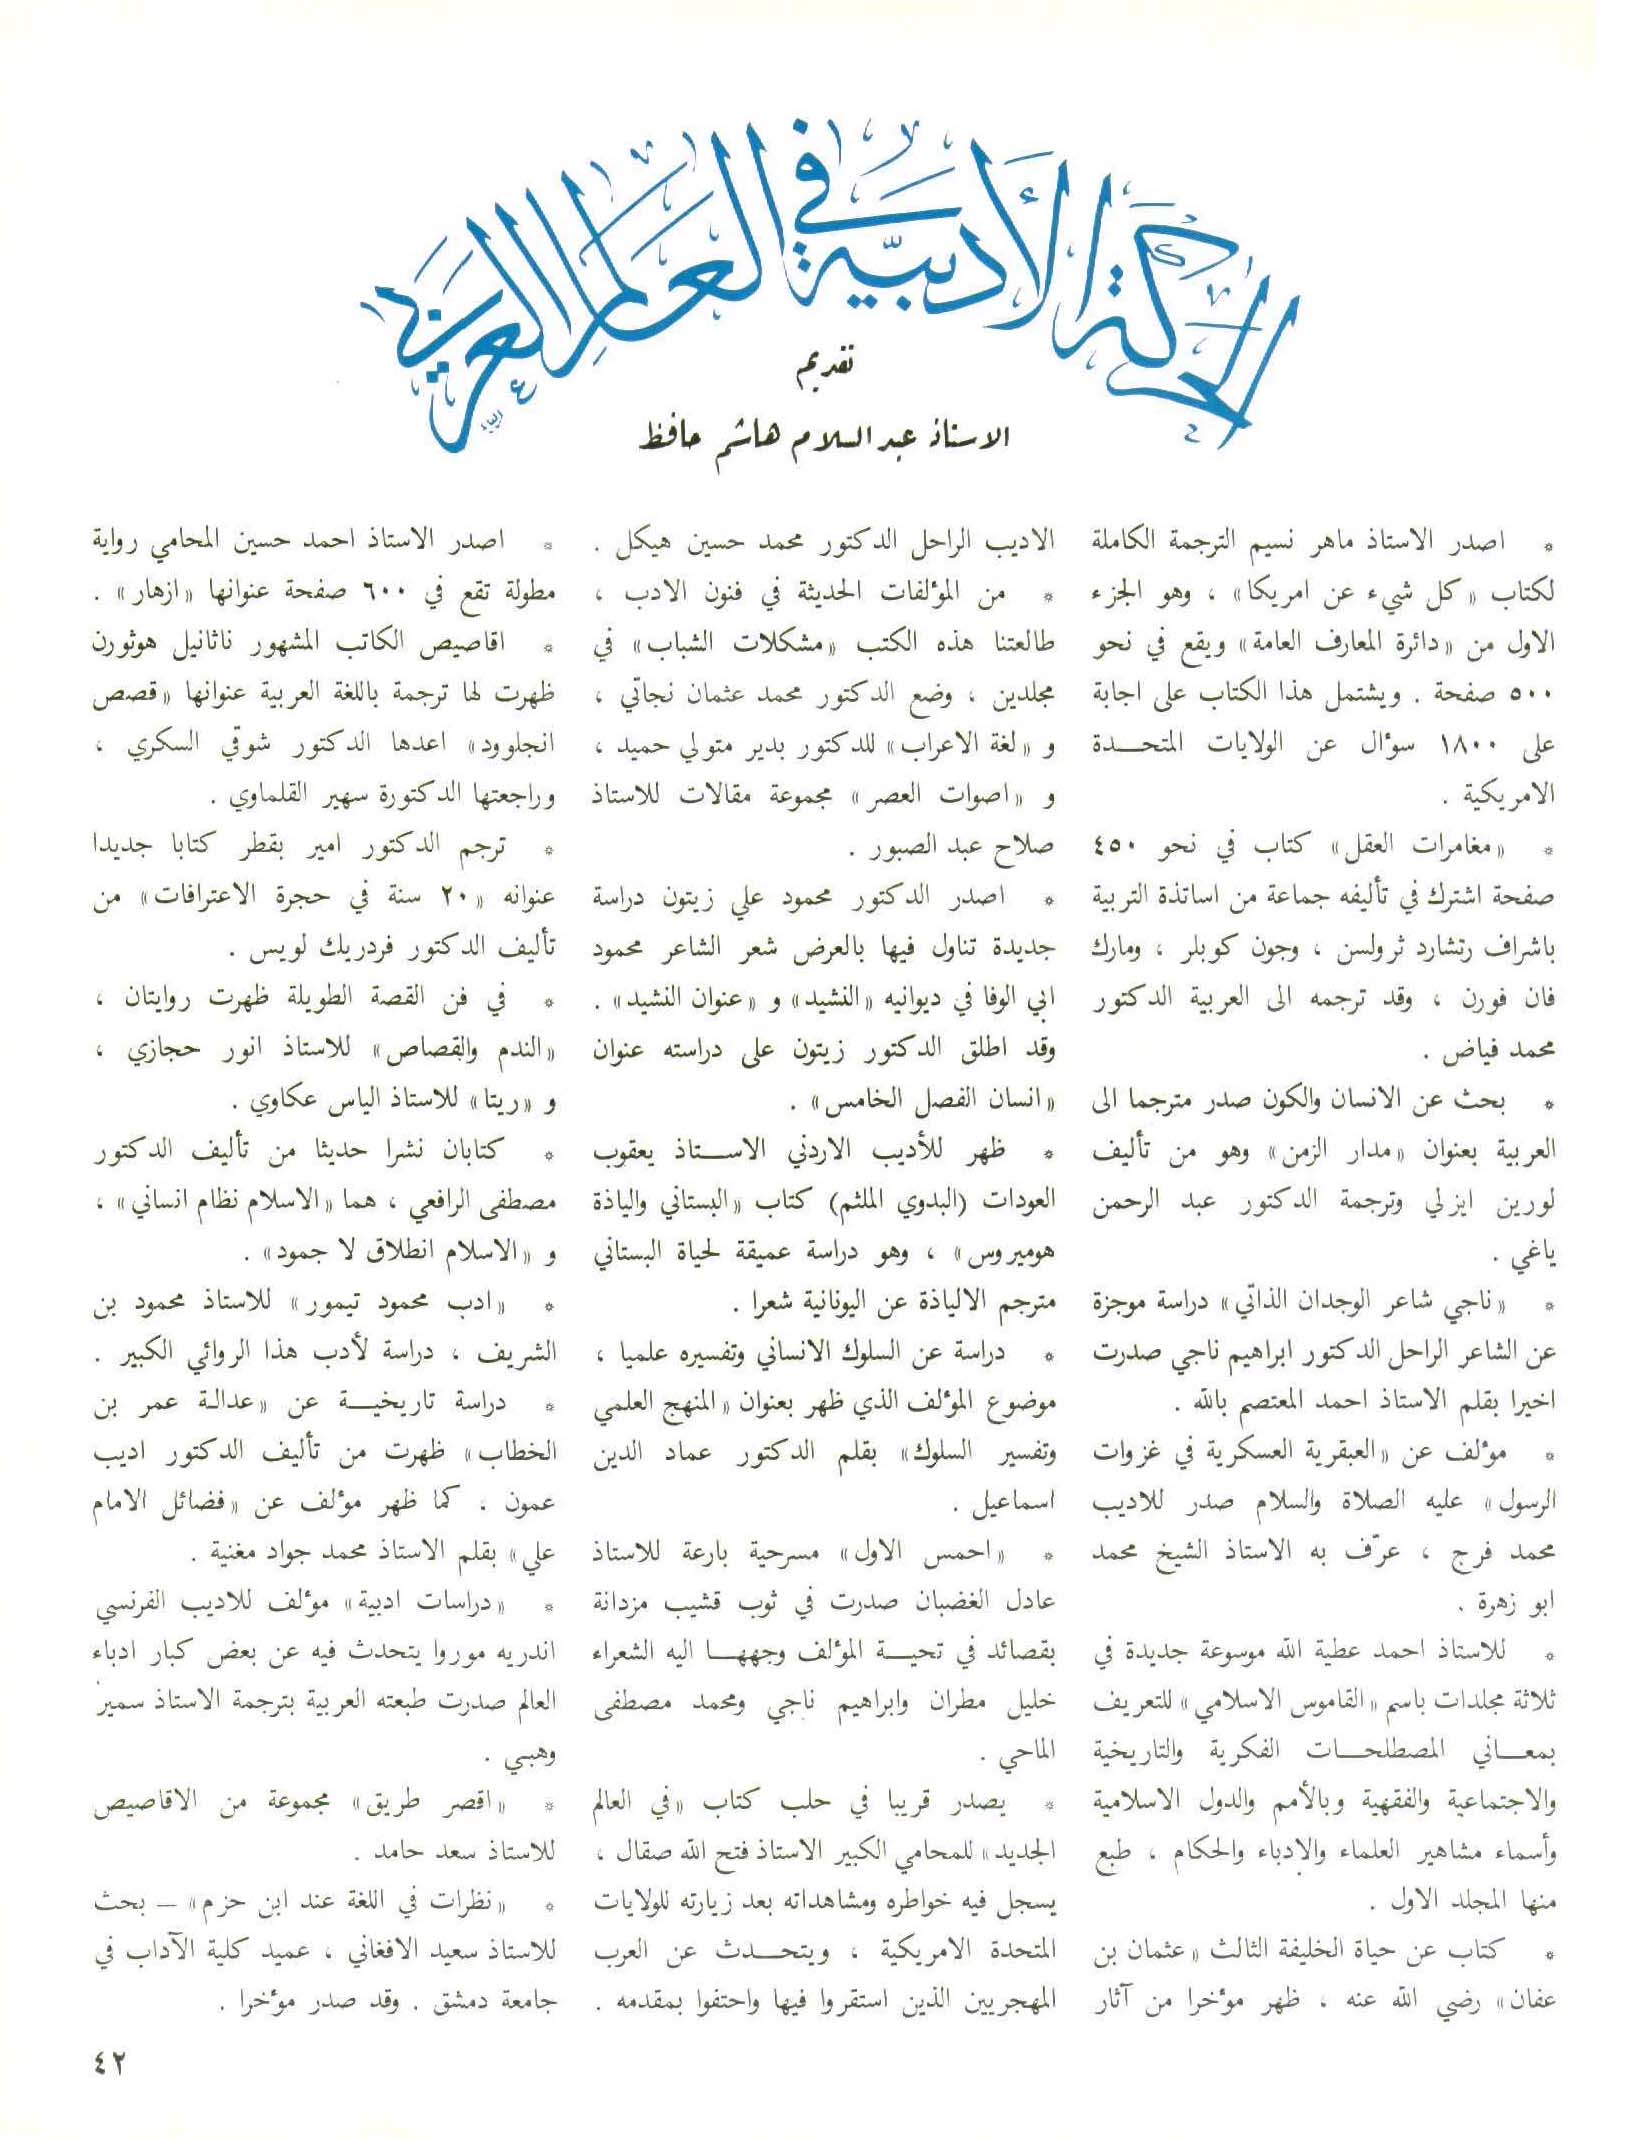 الحركة الأدبية في العالم العربي
تقديم
الاستاذ عبد السلام هاشم حافظ
* اصدر الاستاذ ماهر نسيم الترجمة الكاملة
لكتاب «كل شيء عن امريكا» ، وهو الجزء
الاول من «دائرة المعارف العامة» ويقع في نحو
٥٠٠ صفحة . ويشتمل هذا الكتاب على اجابة
على ١٨٠٠ سؤال عن الولايات المتحدة
الامريكية .
* «مغامرات العقل» كتاب في نحو ٤٥٠
صفحة اشترك في تأليفه جماعة من اساتذة التربية
باشراف رتشارد ثرولسن ، وجون كوبلر ، ومارك
فان فورن ، وقد ترجمه الى العربية الدكتور
محمد فياض .
* بحث عن الانسان والكون صدر مترجما الى
العربية بعنوان «مدار الزمن» وهو من تأليف
لورين ايزلي وترجمة الدكتور عبد الرحمن
ياغي .
* «ناجي شاعر الوجدان الذاتي» دراسة موجزة
عن الشاعر الراحل الدكتور ابراهيم ناجي صدرت
اخيرا بقلم الاستاذ احمد المعتصم بالله .
* مؤلف عن «العبقرية العسكرية في غزوات
الرسول» عليه الصلاة والسلام صدر للاديب
محمد فرج ، عرّف به الاستاذ الشيخ محمد
ابو زهرة .
* للاستاذ احمد عطية الله موسوعة جديدة في
ثلاثة مجلدات باسم «القاموس الاسلامي» للتعريف
بمعاني المصطلحات الفكرية والتاريخية
والاجتماعية والفقهية وبالأمم والدول الاسلامية
وأسماء مشاهير العلماء والادباء والحكام ، طبع
منها المجلد الاول .
* كتاب عن حياة الخليفة الثالث «عثمان بن
عفان» رضي الله عنه ، ظهر مؤخرا من آثار
الاديب الراحل الدكتور محمد حسين هيكل .
* من المؤلفات الحديثة في فنون الادب ،
طالعتنا هذه الكتب «مشكلات الشباب» في
مجلدين ، وضع الدكتور محمد عثمان نجاتي ،
و «لغة الاعراب» للدكتور بدير متولي حميد ،
و «اصوات العصر» مجموعة مقالات للاستاذ
صلاح عبد الصبور .
* اصدر الدكتور محمود علي زيتون دراسة
جديدة تناول فيها بالعرض شعر الشاعر محمود
ابي الوفا في ديوانيه «النشيد» و «عنوان النشيد» .
وقد اطلق الدكتور زيتون على دراسته عنوان
«انسان الفصل الخامس» .
* ظهر للأديب الاردني الاستاذ يعقوب
العودات (البدوي الملثم) كتاب «البستاني والياذة
هوميروس» ، وهو دراسة عميقة لحياة البستاني
مترجم الالياذة عن اليونانية شعرا .
* دراسة عن السلوك الانساني وتفسيره علميا ،
موضوع المؤلف الذي ظهر بعنوان «المنهج العلمي
وتفسير السلوك» بقلم الدكتور عماد الدين
اسماعيل .
* «احمس الاول» مسرحية بارعة للاستاذ
عادل الغضبان صدرت في ثوب قشيب مزدانة
بقصائد في تحية المؤلف وجهها اليه الشعراء
خليل مطران وابراهيم ناجي ومحمد مصطفى
الماحي .
* يصدر قريبا في حلب كتاب «في العالم
الجديد» للمحامي الكبير الاستاذ فتح الله صقال ،
يسجل فيه خواطره ومشاهداته بعد زيارته للولايات
المتحدة الامريكية ، ويتحدث عن العرب
المهجريين الذين استقروا فيها واحتفوا بمقدمه .
* اصدر الاستاذ احمد حسين المحامي رواية
مطولة تقع في ٦٠٠ صفحة عنوانها «ازهار» .
* اقاصيص الكاتب المشهور ناثانيل هوثورن
ظهرت لها ترجمة باللغة العربية عنوانها «قصص
انجلوود» اعدها الدكتور شوقي السكري ،
وراجعتها الدكتورة سهير القلماوي .
* ترجم الدكتور امير بقطر كتابا جديدا
عنوانه «٢٠ سنة في حجرة الاعترافات» من
تأليف الدكتور فردريك لويس .
* في فن القصة الطويلة ظهرت روايتان ،
«الندم والقصاص» للاستاذ انور حجازي ،
و «ريتا» للاستاذ الياس عكاوي .
* كتابان نشرا حديثا من تأليف الدكتور
مصطفى الرافعي ، هما «الاسلام نظام انساني» ،
و «الاسلام انطلاق لا جمود» .
* «ادب محمود تيمور» للاستاذ محمود بن
الشريف ، دراسة لأدب هذا الروائي الكبير .
* دراسة تاريخية عن «عدالة عمر بن
الخطاب» ظهرت من تأليف الدكتور اديب
عمون ، كما ظهر مؤلف عن «فضائل الامام
علي» بقلم الاستاذ محمد جواد مغنية .
* «دراسات ادبية» مؤلف للاديب الفرنسي
اندريه موروا يتحدث فيه عن بعض كبار ادباء
العالم صدرت طبعته العربية بترجمة الاستاذ سمير
وهبي .
* «اقصر طريق» مجموعة من الاقاصيص
للاستاذ سعد حامد .
* «نظرات في اللغة عند ابن حزم» – بحث
للاستاذ سعيد الافغاني ، عميد كلية الآداب في
جامعة دمشق . وقد صدر مؤخرا .
٤٢